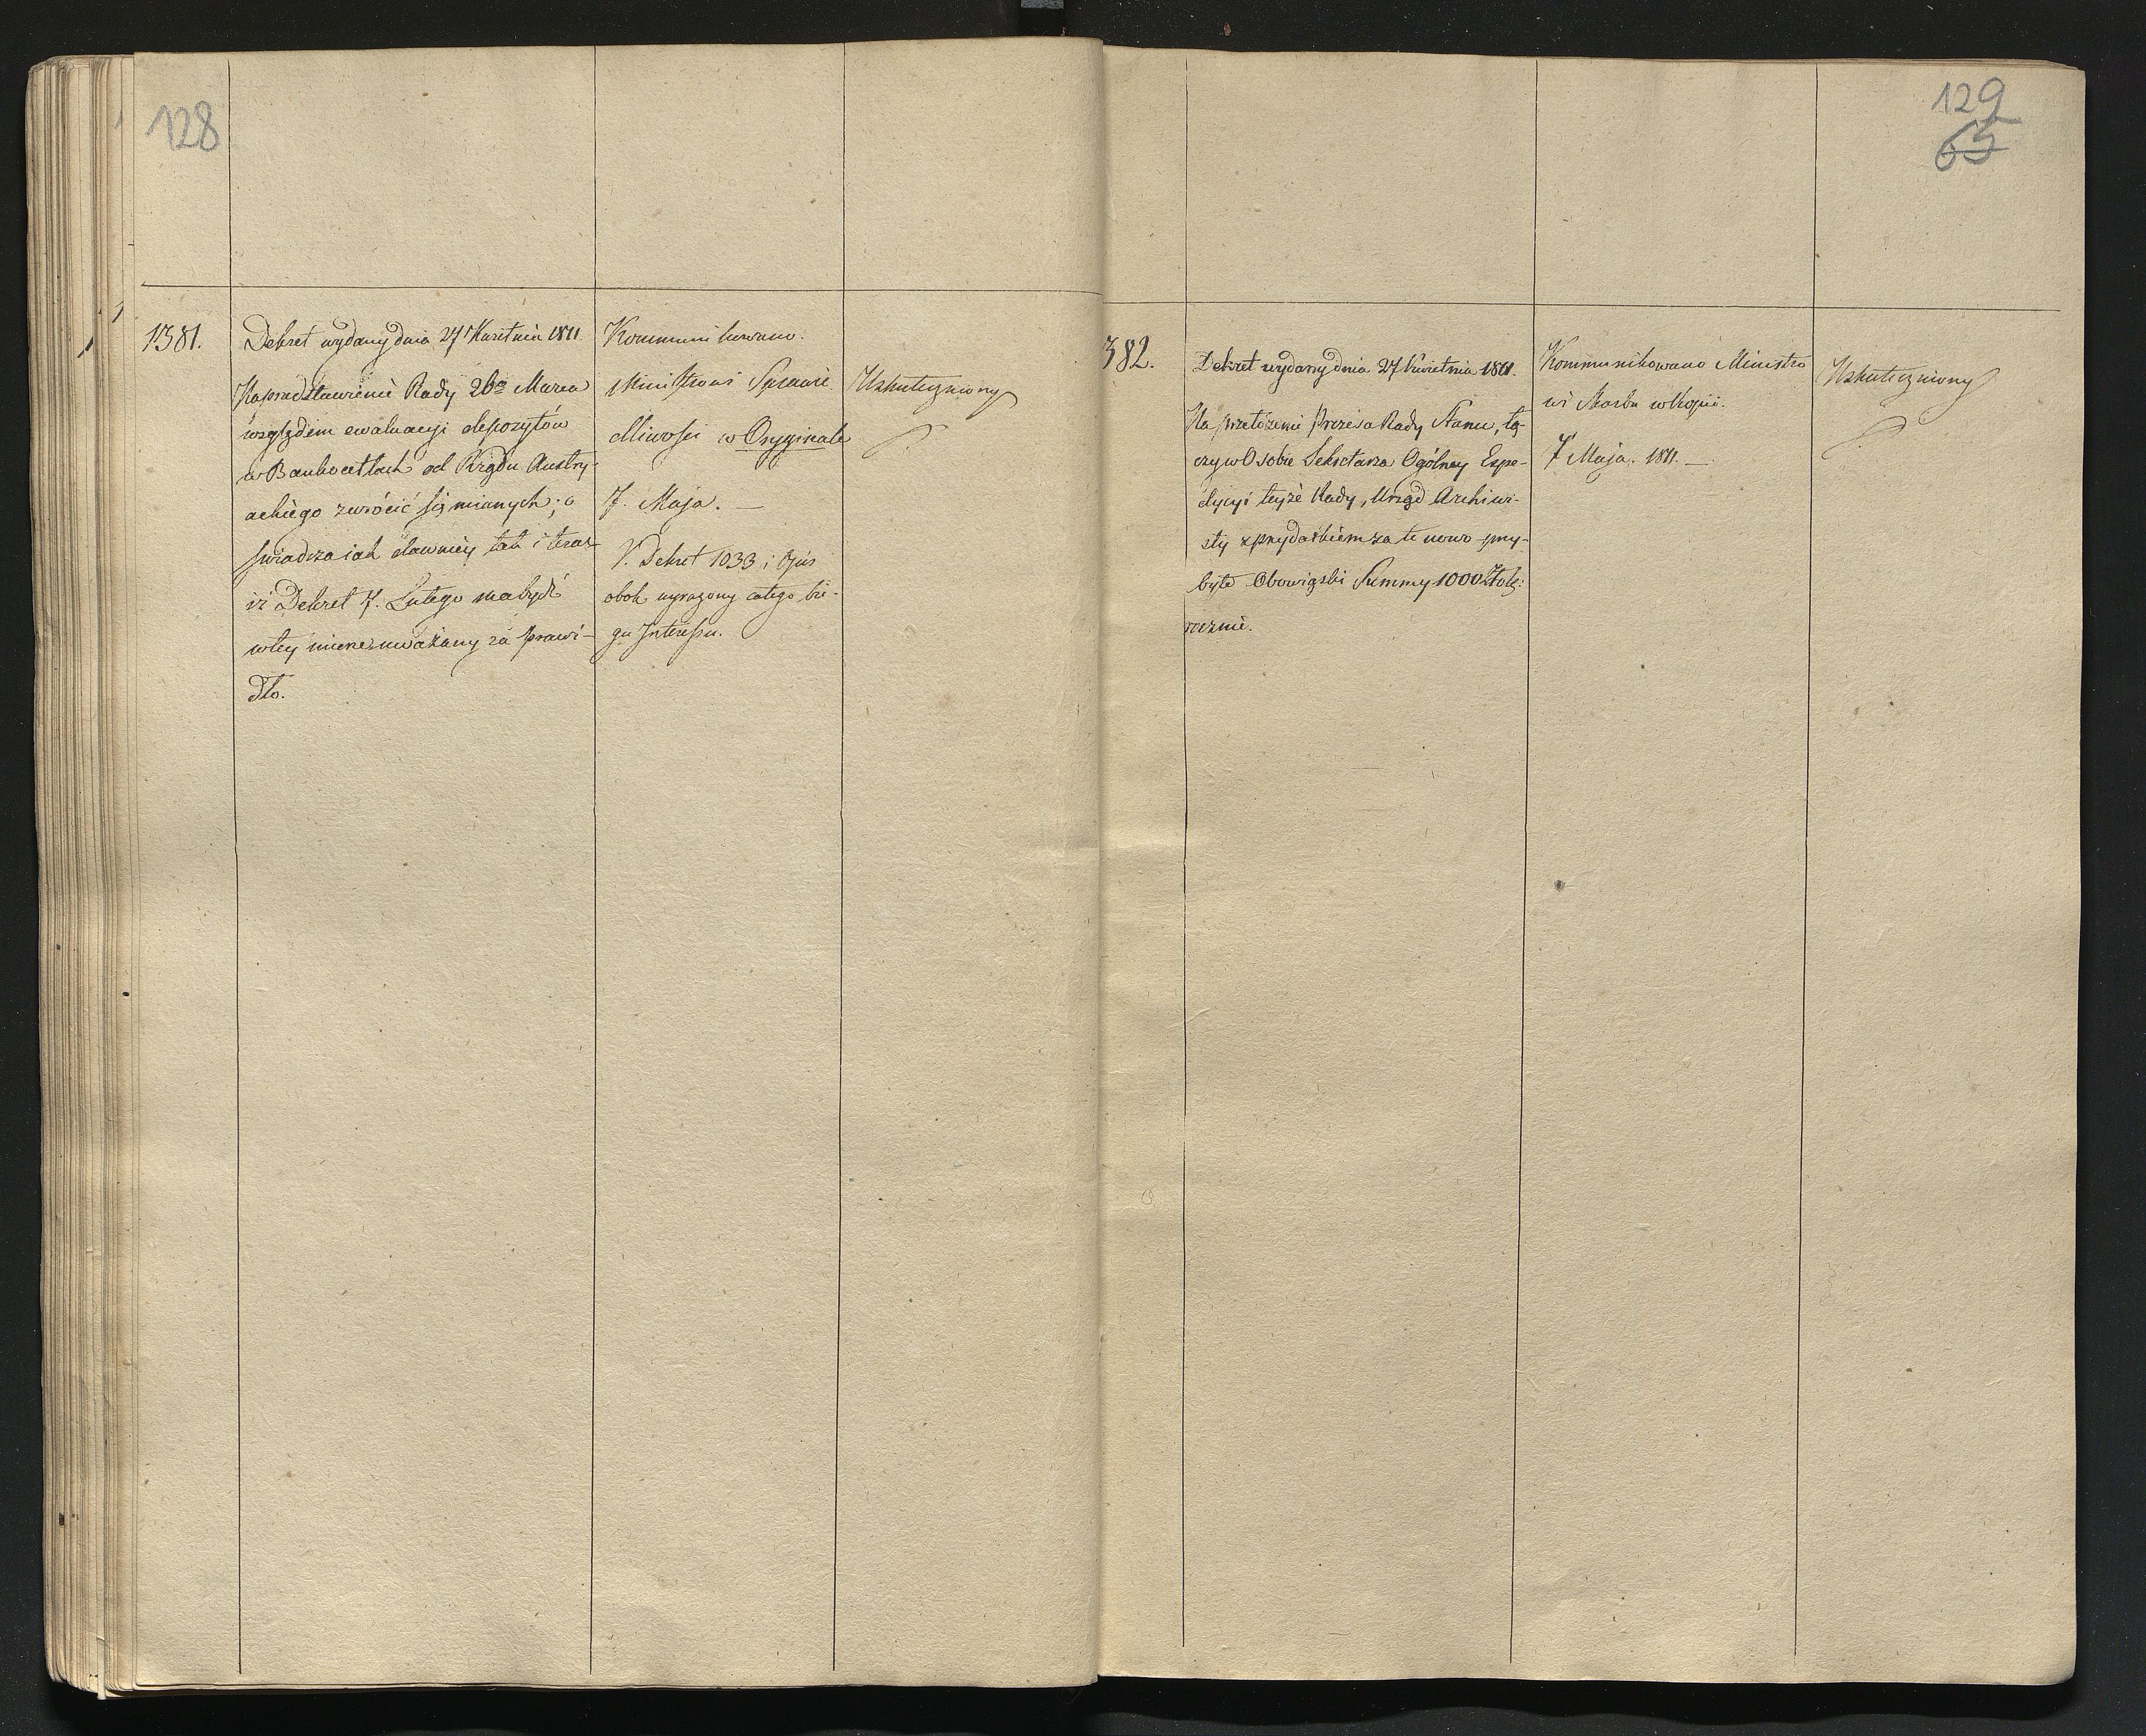 128
1381.
Dekret wydany dnia 27 Kwietnia 1811.
Na przedstawienie Rady 26go Marca
względem ewaluacyi depozytów
w Bankocetlach od Rządu Austry-
ackiego zwrócić się mianych; o
świadcza iak dawniéy tak i teraz
iż Dekret 7. Lutego ma bydź
w tey mierze uważany za prawi-
dło.
Kommunikowano.
Ministrowi Sprawie
dliwości w Oryginale
7. Maja. —
V. Dekret 1033 i Opis
obok wyrażony całego bie-
gu Interessu.
Uskuteczniony
129
65
382.
Dekret wydany dnia 27 Kwietnia 1811.
Na przełożenie Prezesa Rady Stanu, łą-
czy w Osobie Sekretarza Ogólney Expe-
dycyi teyże Rady, Urząd Archiwi-
sty z przydatkiem za te nowo przy-
byłe Obowiązki Summy 1000 Złotp:
rocznie.
Kommunikowano Ministro
wi Skarbu w Kopii.
7 Maja. 1811. —
Uskuteczniony